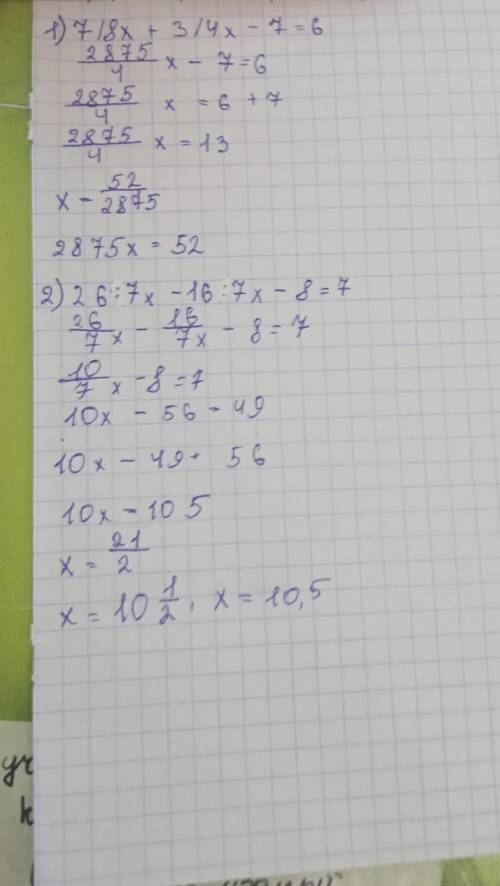 1) 7/8x + 3/4x - 7 = 6
2875/4 x - 7 = 6
2875/4 x = 6 + 7
2875/4 x = 13
x - 52/2875
2875x = 52
2) 26:7x - 16:7x - 8 = 7
26/7 x - 16/7x - 8 = 7
10/7 x - 8 = 7
10x - 56 - 49
10x - 49 + 56
10x - 105
x = 21/2
x = 10 1/2, x = 10,5
уч